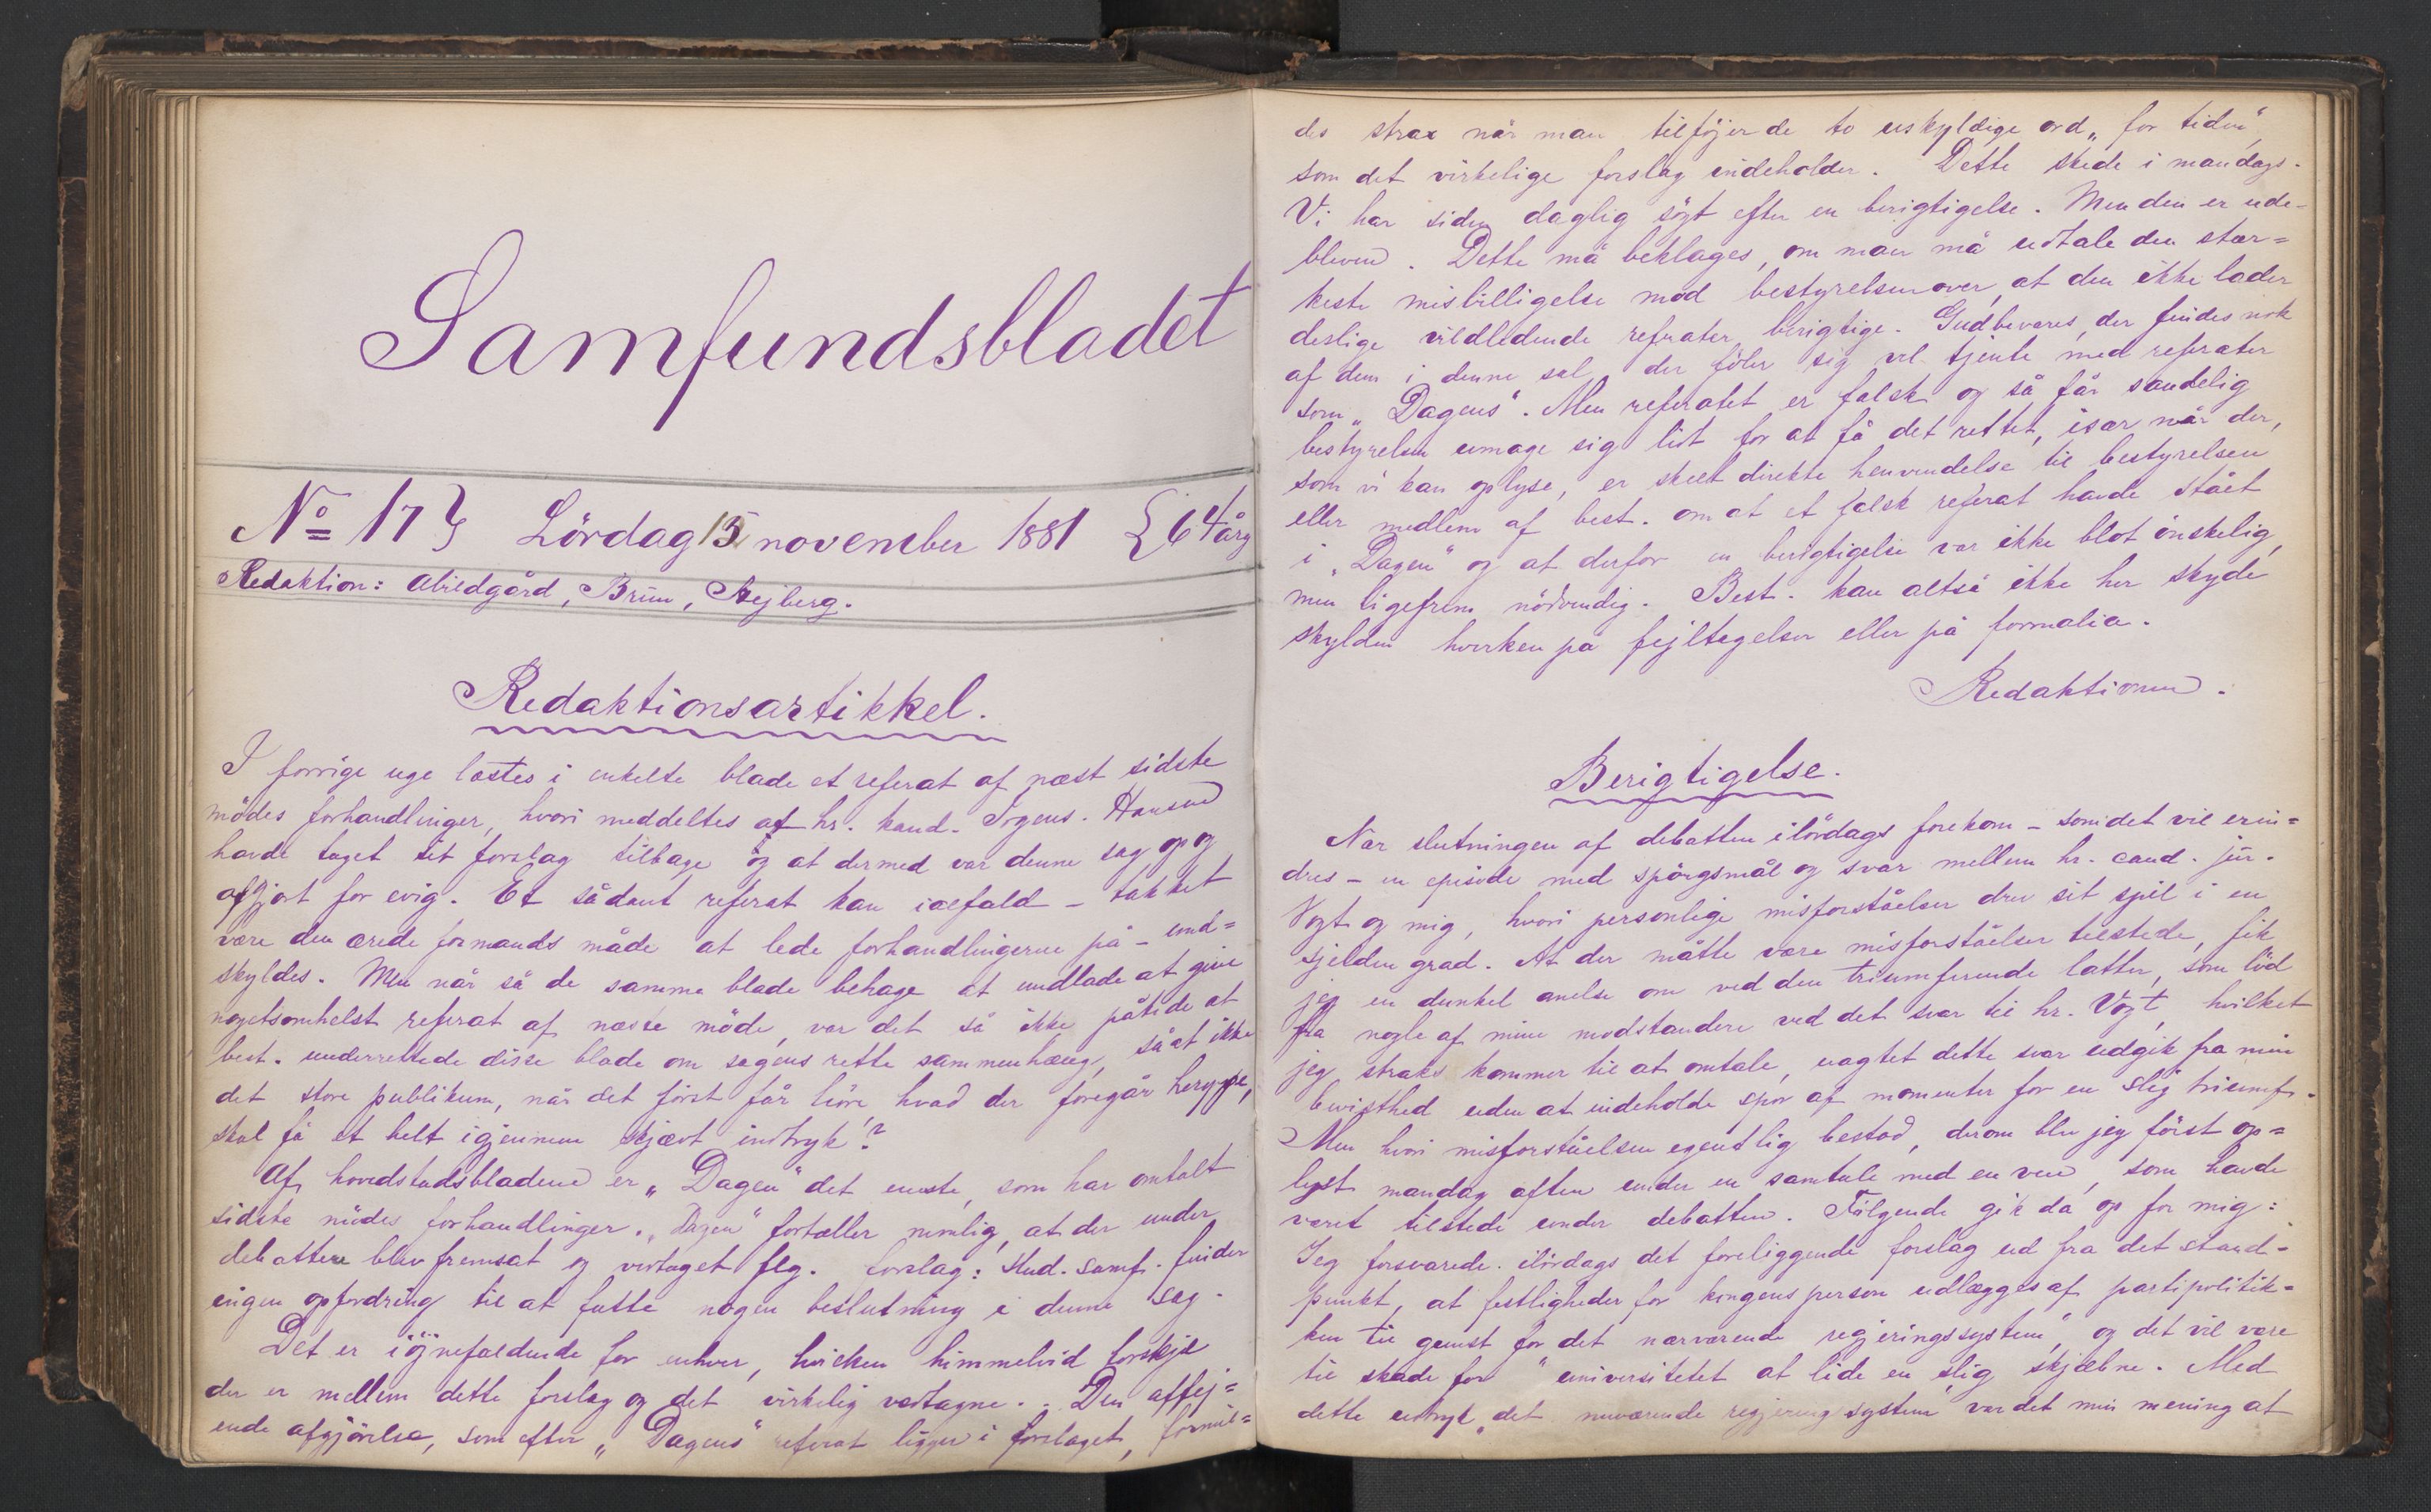 Samfundsbladet
No 17} Lördag 15 november 1881 {64 årg
Redaktion: Abildgård, Bruun, Stejberg.
Redaktionsartikkel.
I forrige uge læstes i enkelte blade et referat af næst sidste
mödes forhandlinger, hvori meddeltes at hr. kand. Irgens. Hansen
havde taget sit forslag tilbage og at dermed var denne sag op og
afgjort for evig. Et sådant referat kan ialfald – takket
være den ærede formands måde at lede forhandlingerne på – und=
skyldes. Men når så de samme blade behage at undlade at give
nogetsomhelst referat af næste möde, var det så ikke påtide at
best. underrettede disse blade om sagens rette sammenhæng, så at ikke
det store publikum, når det först får höre hvad der foregår heroppe,
skal få et helt igjennem skjævt indtryk?
Af hovedstadsbladene er „Dagen" det eneste, som har omtalt
sidste mödes forhandlinger. „Dagen" fortæller nemlig, at der under
debatten blev fremsat og vedtaget flg. forslag: Stud. samf. finder
ingen opfordring til at fatte nogen beslutning i denne sag.
Det er iöjnefaldende for enhver, hvilken himmelvid forskjel
der er mellem dette forslag og det virkelig vedtagne. Den affej=
ende afgjörelse, som efter „Dagens" referat ligger i forslaget, formil=
des strax når man tilföjer de to uskyldige ord „for tiden",
som det virkelige forslag indeholder. Dette skede i mandags.
Vi har siden daglig sögt efter en berigtigelse. Men den er ude-
bleven. Dette må beklages, om man må udtale den stær=
keste misbilligelse mod bestyrelsen over, at den ikke lader
deslige vildledende referater berigtige. Gudbevares, der findes nok
af dem i denne sal, der föler sig vel tjente med referater
som „Dagens". Men referatet er falsk og så får sandelig
bestyrelsen umage sig lidt for at få det rettet, især når der,
som vi kan oplyse, er skeet direkte henvendelse til bestyrelsen
eller medlem af best. om at et falsk referat havde stået
i „Dagen" og at derfor en berigtigelse var ikke blot önskelig,
men ligefrem nödvendig. Best. kan altså ikke her skyde
skylden hverken på fejltagelser eller på formalia.
Redaktionen.
Berigtigelse.
Nær slutningen af debatten ilördags forekom – som det vil erin=
dres – en episode med spörgsmål og svar mellem hr. cand. jur.
Vogt og mig, hvori personlige misforståelser drev sit spil i en
sjelden grad. At der måtte være misforståelser tilstede, fik
jeg en dunkel anelse om ved den triumferende latter, som löd
fra nogle af mine modstandere ved det svar til hr. Vogt, hvilket
jeg straks kommer til at omtale, uagtet dette svar udgik fra min
bevisthed uden at indeholde spor af momenter for en slig triumf.
Men hvori misforståelsen egentlig bestod, derom blev jeg först op=
lyst mandag aften under en samtale med en ven, som havde
været tilstede under debatten. Fölgende gik da op for mig:
Jeg forsvarede ilördags det foreliggende forslag ud fra det stand-
punkt, at festligheder for kongens person udlægges af partipolitik-
ken til gunst for det nærværende regjeringssystem", og det vil være
til skade for "universitetet at lide en slig skjæbne. Med
dette udtryk „det nuværende regjeringssystem" var det min mening at